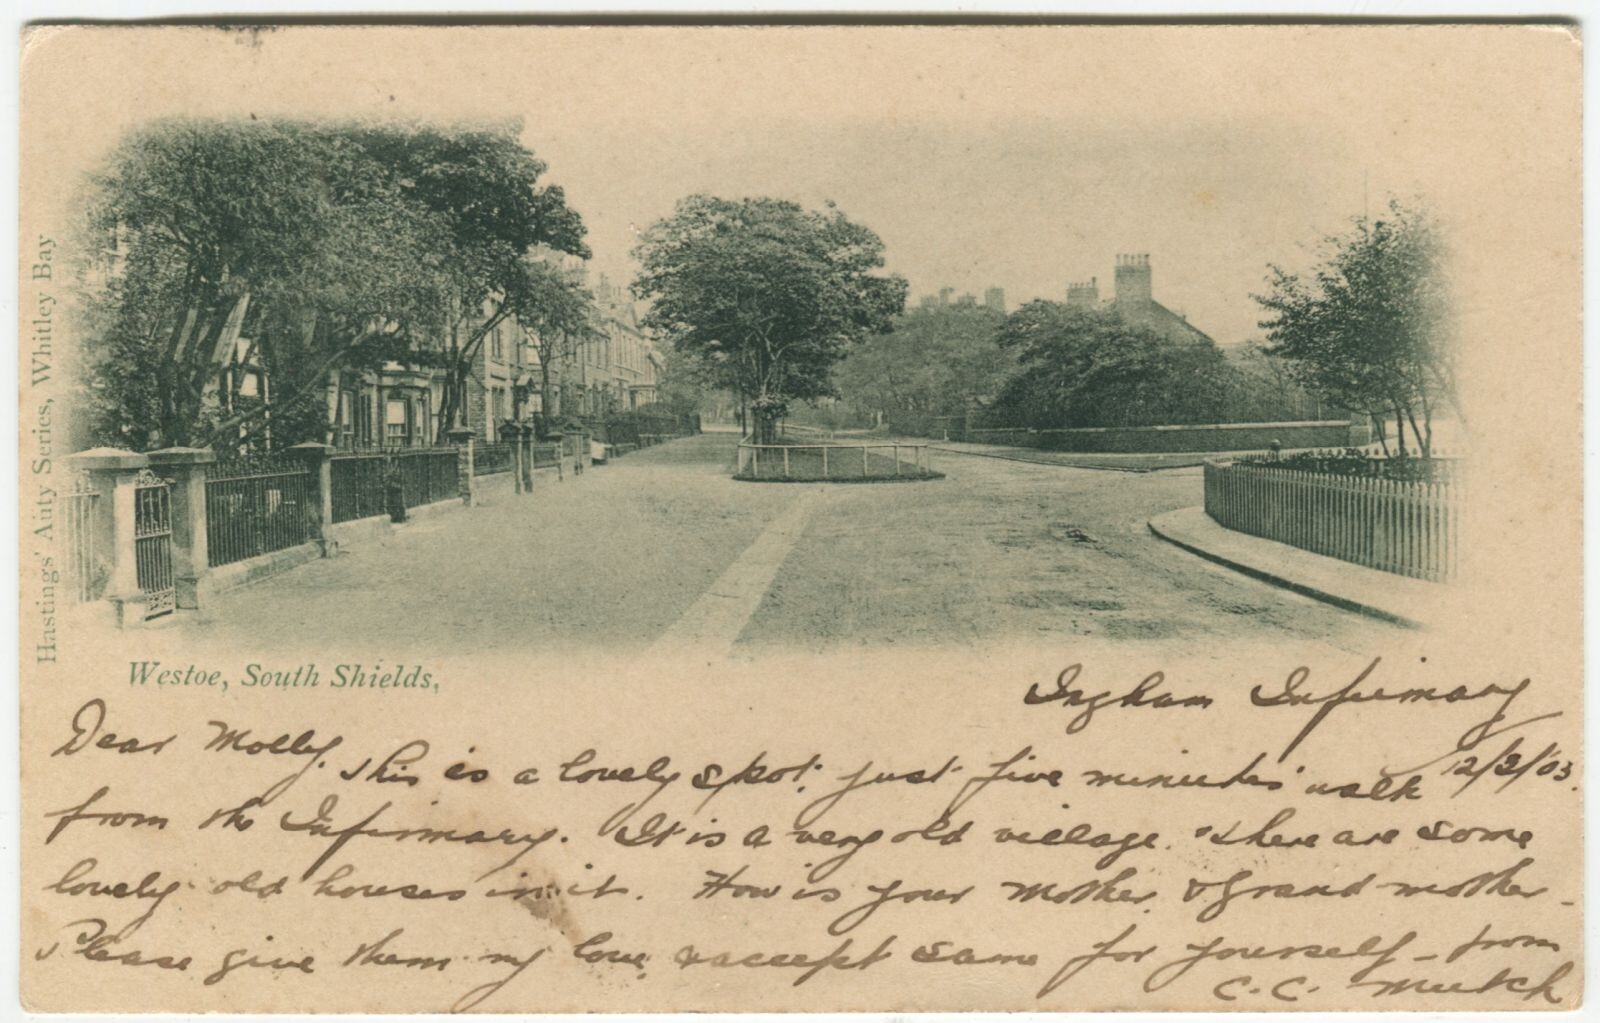 Hastings' Auty Series, Whitley Bay
Westoe, South Shields,
Ingham Infirmary
12/3/03.
Dear Molly, this is a lovely spot, just five minutes' walk
from the Infirmary. It is a very old village. there are some
lovely old houses in it. How is your Mother, & Grand-mother -
Please give them my love, & accept same for yourself - from
C. C. Mutch